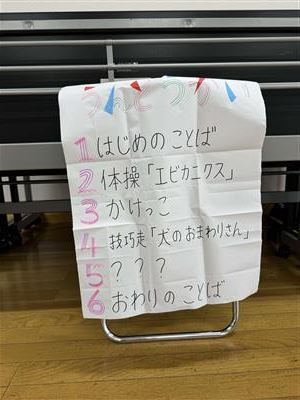 1 はじめのことば
2 体操「エビカニクス」
3 かけっこ
4 技巧走「犬のおまわりさん」
5 ? ? ?
6 おわりのことば